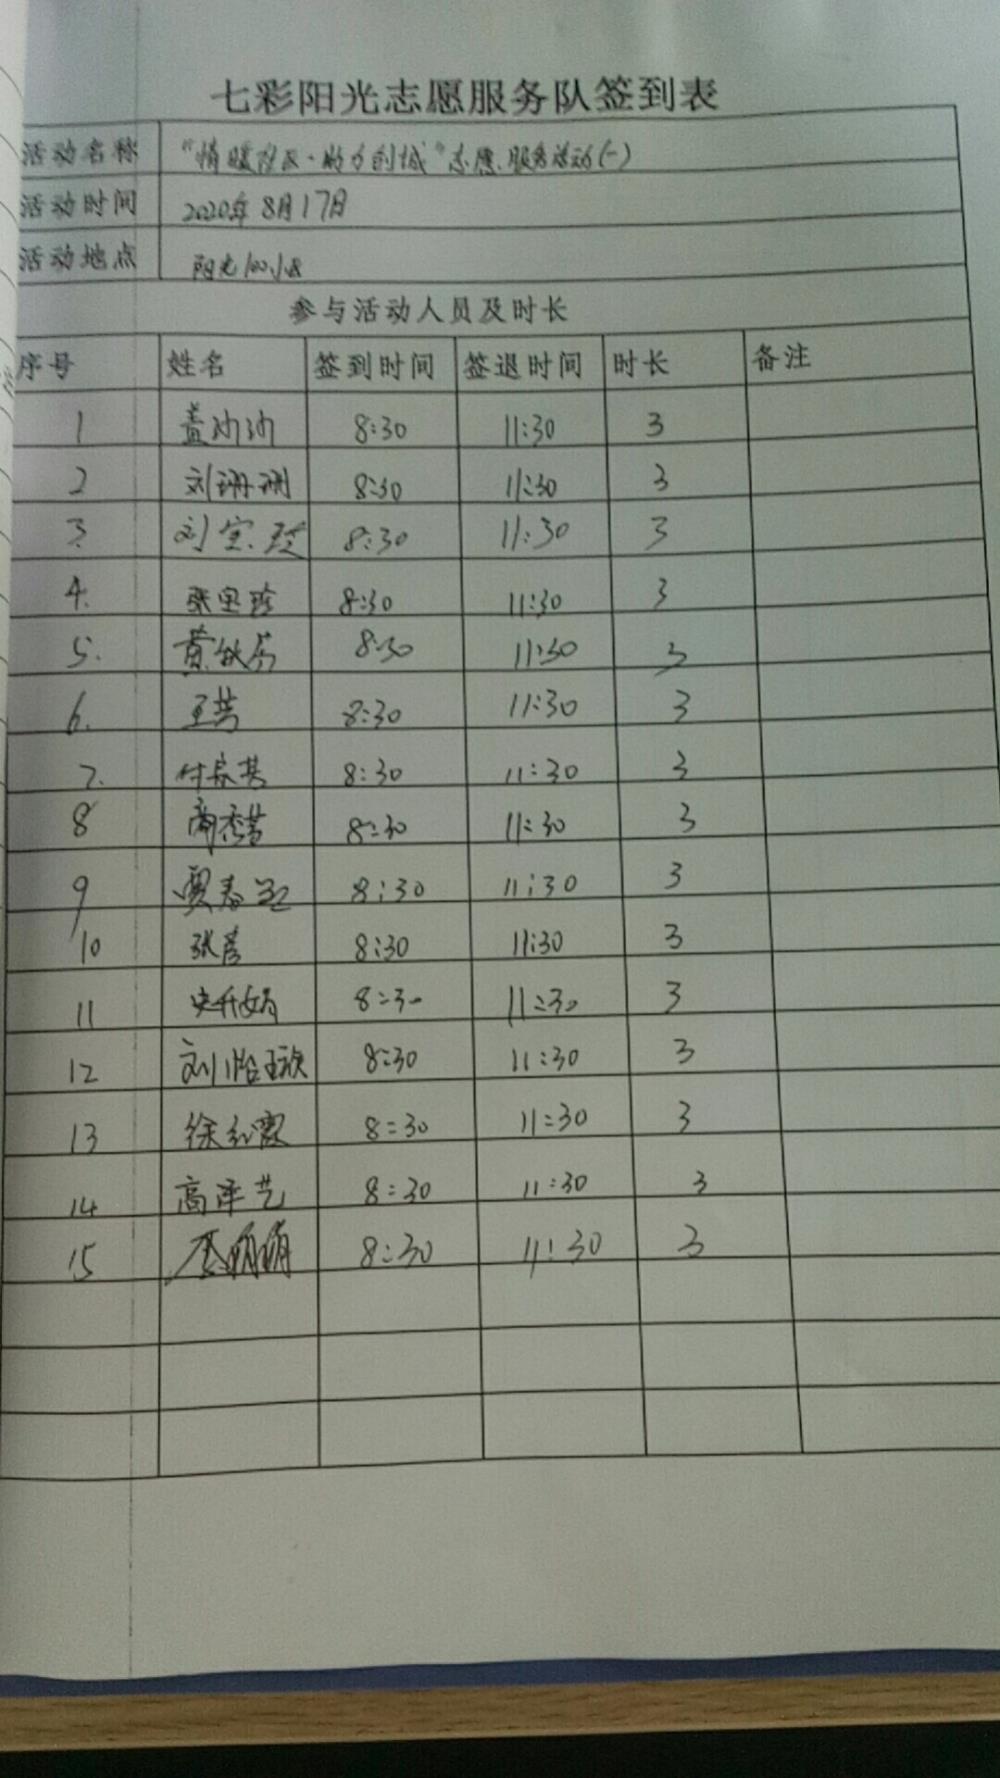 七彩阳光志愿服务队签到表
活动名称 "情暖社区·助力创城"志愿服务活动(一)
活动时间 2020年8月17日
活动地点 阳光100小区
参与活动人员及时长
序号 姓名 签到时间 签退时间 时长 备注
1 盖沙沙 8:30 11:30 3
2 刘珊珊 8:30 11:30 3
3. 刘宝 8:30 11:30 3
4. 张宝珍 8:30 11:30 3
5. 黄 8:30 11:30 3
6. 王芳 8:30 11:30 3
7. 付 8:30 11:30 3
8 8:30 11:30 3
9 贾春 8:30 11:30 3
10 张彦 8:30 11:30 3
11 史 8:30 11:30 3
12 刘怡 8:30 11:30 3
13 徐红霞 8:30 11:30 3
14 高泽艺 8:30 11:30 3
15 萌萌 8:30 11:30 3